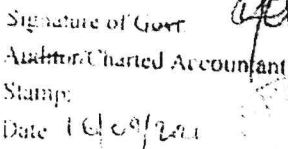 Signature of Govt.
Auditor/Charted Accountant
Stamp:
Date